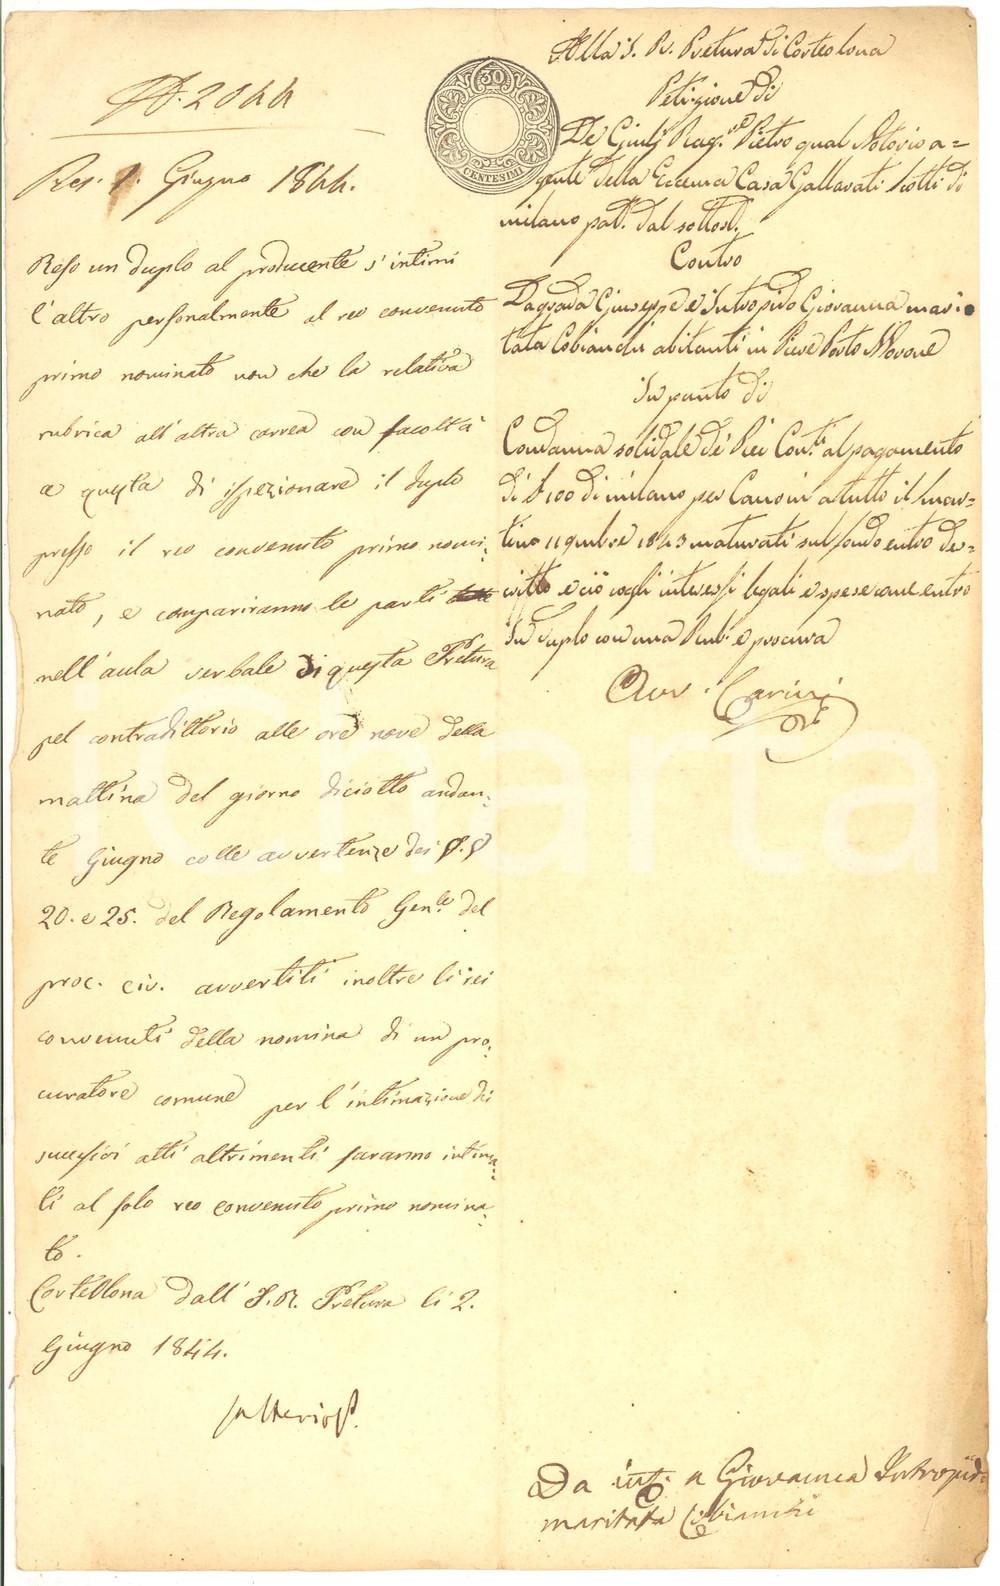 N. 2044
Res. 1. Giugno 1844.
Reso un duplo al producente s'intimi
l'altro personalmente al reo convenuto
primo nominato non che la relativa
rubrica all'altra correa con facoltà
a questa di ispezionare il duplo
presso il reo convenuto primo nomi:
nato, e compariranno le parti
nell'aula verbale di questa Pretura
pel contradittorio alle ore nove della
mattina del giorno diciotto andan:
te Giugno colle avvertenze dei §. §
20. e 25. del Regolamento Gen.le del
proc. civ. avvertiti inoltre li rei
convenuti della nomina di un pro:
curatore comune per l'intimazione di
successivi atti altrimenti saranno intima:
ti al solo reo convenuto primo nomina:
to.
Corteolona dall'I. R. Pretura li 2.
Giugno 1844.
30
CENTESIMI
Alla I. R. Pretura di Corteolona
Petizione di
De Giulj Rag.re Pietro qual Notorio a=
gente della Eccema Casa Gallarati Scotti di
milano pat. dal sottost.
Contro
Dagrada Giuseppe e Intropido Giovanna mari=
tata Cobianchi abitanti in Pieve Porto Morone
In punto di
Condanna solidale de' Rei Con.ti al pagamento
di £ 100 di milano per Canoni a tutto il mar=
tino 11 9mbre 1843 maturati sul fondo entro de=
critto e ciò cogli interessi legali e spese come entro
In duplo con una Rub. e procura
Avv. Carini
Da int. a Giovanna Intropido
maritata Cobianchi